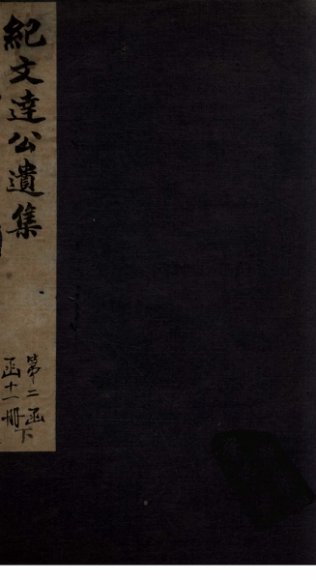 紀文達公遺集
第二函下
函十一冊